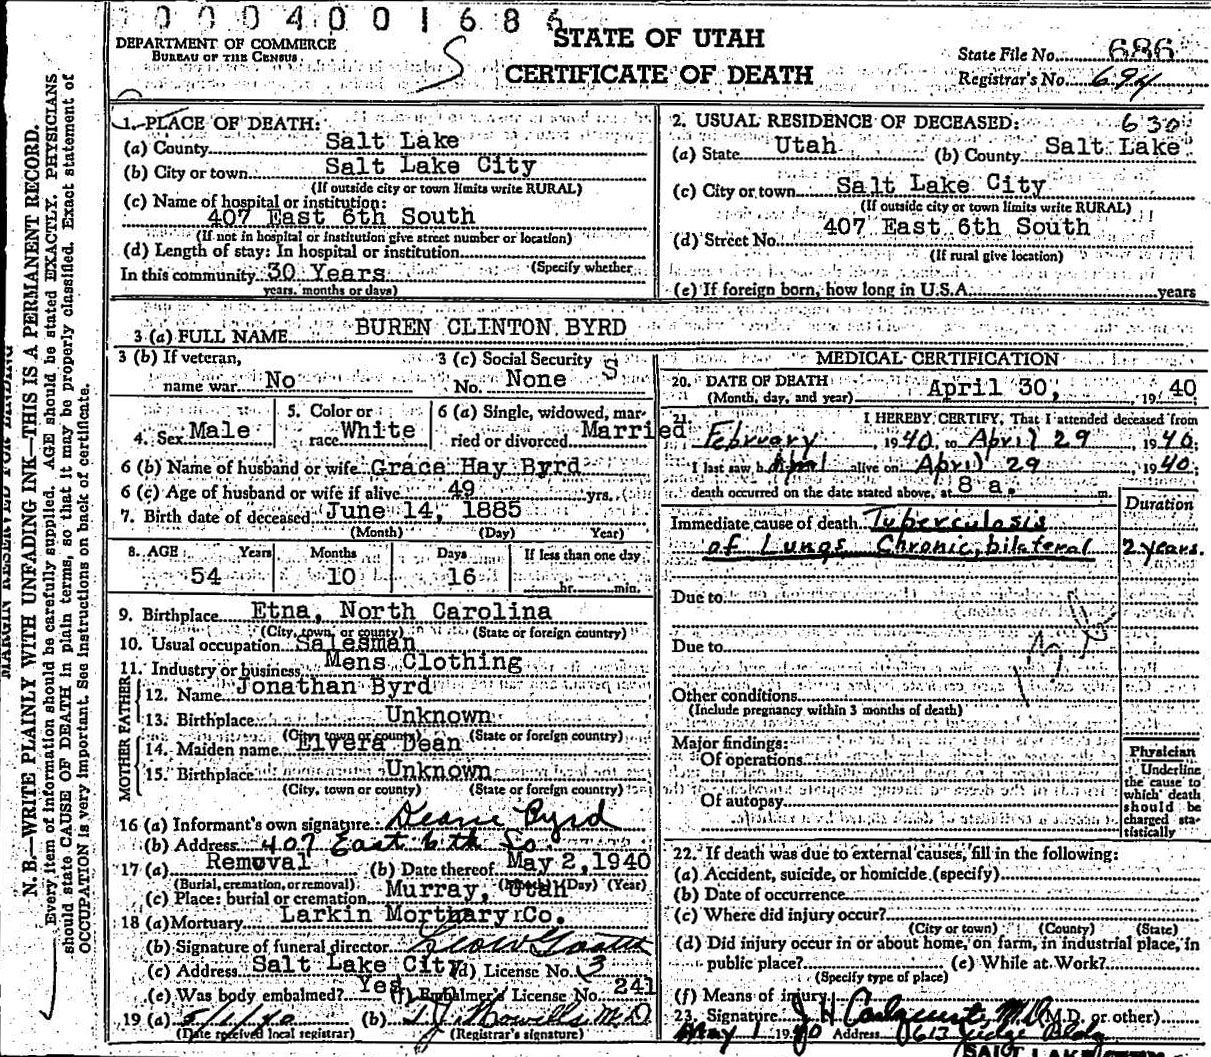 0004001686
DEPARTMENT OF COMMERCE
BUREAU OF THE CENSUS
S
STATE OF UTAH
CERTIFICATE OF DEATH
State File No. 686
Registrar's No. 694
N. B.—WRITE PLAINLY WITH UNFADING INK—THIS IS A PERMANENT RECORD.
Every item of information should be carefully supplied. AGE should be stated EXACTLY. PHYSICIANS
should state CAUSE OF DEATH in plain terms, so that it may be properly classified. Exact statement of
OCCUPATION is very important. See instructions on back of certificate.
1. PLACE OF DEATH:
(a) County Salt Lake
(b) City or town Salt Lake City
(If outside city or town limits write RURAL)
(c) Name of hospital or institution:
407 East 6th South
(If not in hospital or institution give street number or location)
(d) Length of stay: In hospital or institution
(Specify whether
In this community 30 Years
years, months or days)
2. USUAL RESIDENCE OF DECEASED: 630
(a) State Utah (b) County Salt Lake
(c) City or town Salt Lake City
(If outside city or town limits write RURAL)
(d) Street No. 407 East 6th South
(If rural give location)
(e) If foreign born, how long in U.S.A. years
3 (a) FULL NAME BUREN CLINTON BYRD
3 (b) If veteran, name war No
3 (c) Social Security No. None S
4. Sex Male
5. Color or race White
6 (a) Single, widowed, married or divorced Married
6 (b) Name of husband or wife Grace Hay Byrd
6 (c) Age of husband or wife if alive 49 yrs.
7. Birth date of deceased June 14, 1885
(Month) (Day) Year)
8. AGE Years Months Days If less than one day
54 10 16 hr. min.
9. Birthplace Etna, North Carolina
(City, town, or county) (State or foreign country)
10. Usual occupation Salesman
11. Industry or business Mens Clothing
FATHER
12. Name Jonathan Byrd
13. Birthplace Unknown
(City town or county) (State or foreign country)
MOTHER
14. Maiden name Elvera Dean
15. Birthplace Unknown
(City, town or county) (State or foreign country)
16 (a) Informant's own signature Deane Byrd
(b) Address 407 East 6th So
17 (a) Removal (b) Date thereof May 2, 1940
(Burial, cremation, or removal) (Month) (Day) (Year)
(c) Place: burial or cremation Murray, Utah
18 (a) Mortuary Larkin Mortuary Co.
(b) Signature of funeral director
(c) Address Salt Lake City (d) License No. 3
(e) Was body embalmed? Yes (f) Embalmer's License No. 241
19 (a) 5/1/40 (b) M.D.
(Date received local registrar) (Registrar's signature)
MEDICAL CERTIFICATION
20. DATE OF DEATH April 30, 1940
(Month, day, and year)
21. I HEREBY CERTIFY, That I attended deceased from
February 1940, to April 29 1940.
I last saw h alive on April 29, 1940.
death occurred on the date stated above, at 8 a. m.
Duration
Immediate cause of death Tuberculosis
of Lungs Chronic, bilateral 2 years.
Due to
Due to
Other conditions
(Include pregnancy within 3 months of death)
Major findings:
Of operations
Of autopsy
Physician
Underline
the cause to
which death
should be
charged sta-
tistically
22. If death was due to external causes, fill in the following:
(a) Accident, suicide, or homicide (specify)
(b) Date of occurrence
(c) Where did injury occur?
(City or town) (County) (State)
(d) Did injury occur in or about home, on farm, in industrial place, in
public place? (e) While at Work?
(Specify type of place)
(f) Means of injury
23. Signature M.D. (M.D. or other)
May 1 1940 Address 613 Judge Bldg
SALT LAKE